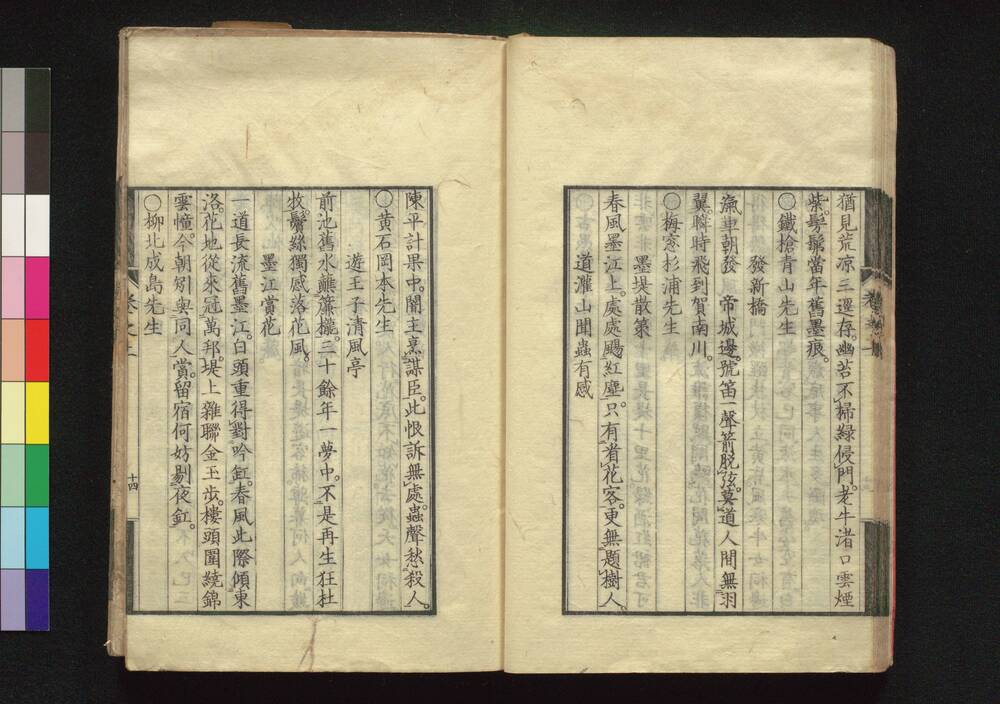 猶見荒凉三逕存。幽苔不掃緑侵門。老牛渚口雲煙
紫。髣髴當年舊墨痕。
○鐵槍青山先生
發新橋
滊車朝發　帝城邊。號笛一聲箭脱弦。莫道人間無羽
翼。瞬時飛到賀南川。
○梅窓杉浦先生
墨堤散策
春風墨江上。處處颺紅塵。只有看花客。更無題樹人。
道灌山聞蟲有感
陳平計果中。闇主烹謀臣。此恨訴無處。蟲聲愁殺人。
○黄石岡本先生
遊王子清風亭
前池舊水蘸簾櫳。三十餘年一夢中。不是再生狂杜
牧。鬢絲獨感落花風。
墨江賞花
一道長流舊墨江。白頭重得對吟缸。春風此際傾東
洛。花地從來冠萬邦。堤上雜聯金玉步。樓頭圍繞錦
雲幢。今朝矧與同人賞。留宿何妨剔夜釭。
○柳北成島先生
卷之上
十四